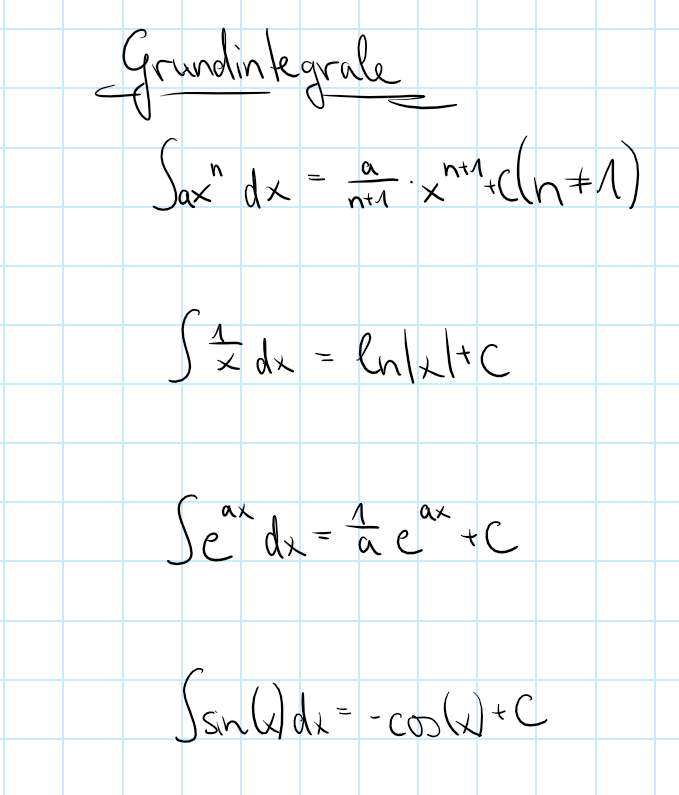 Grundintegrale
∫axⁿ dx = a/(n+1) · xⁿ⁺¹ + C (n≠1)
∫ 1/x dx = ln|x| + C
∫e^(ax) dx = 1/a e^(ax) + C
∫sin(x) dx = -cos(x) + C